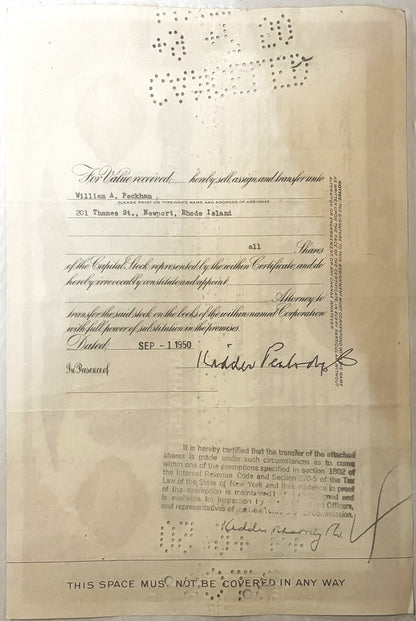 For Value received, hereby sell, assign and transfer unto
William A. Peckham
PLEASE PRINT OR TYPEWRITE NAME AND ADDRESS OF ASSIGNEE
201 Thames St., Newport, Rhode Island
all Shares
of the Capital Stock represented by the within Certificate, and do
hereby irrevocably constitute and appoint
Attorney to
transfer the said stock on the books of the within-named Corporation
with full power of substitution in the premises.
Dated, SEP - 1 1950
Kidder Peabody & Co
In Presence of
NOTICE: THE SIGNATURE TO THIS ASSIGNMENT MUST CORRESPOND WITH THE NAME
It is hereby certified that the transfer of the attached
shares is made under such circumstances as to come
within one of the exemptions specified in section 1802 of
the Internal Revenue Code and Section 270-5 of the Tax
Law of the State of New York and that evidence in proof
of the exemption is maintained by the undersigned and
is available for inspection by Officers,
and representatives of
Kidder Peabody & Co.
THIS SPACE MUST NOT BE COVERED IN ANY WAY